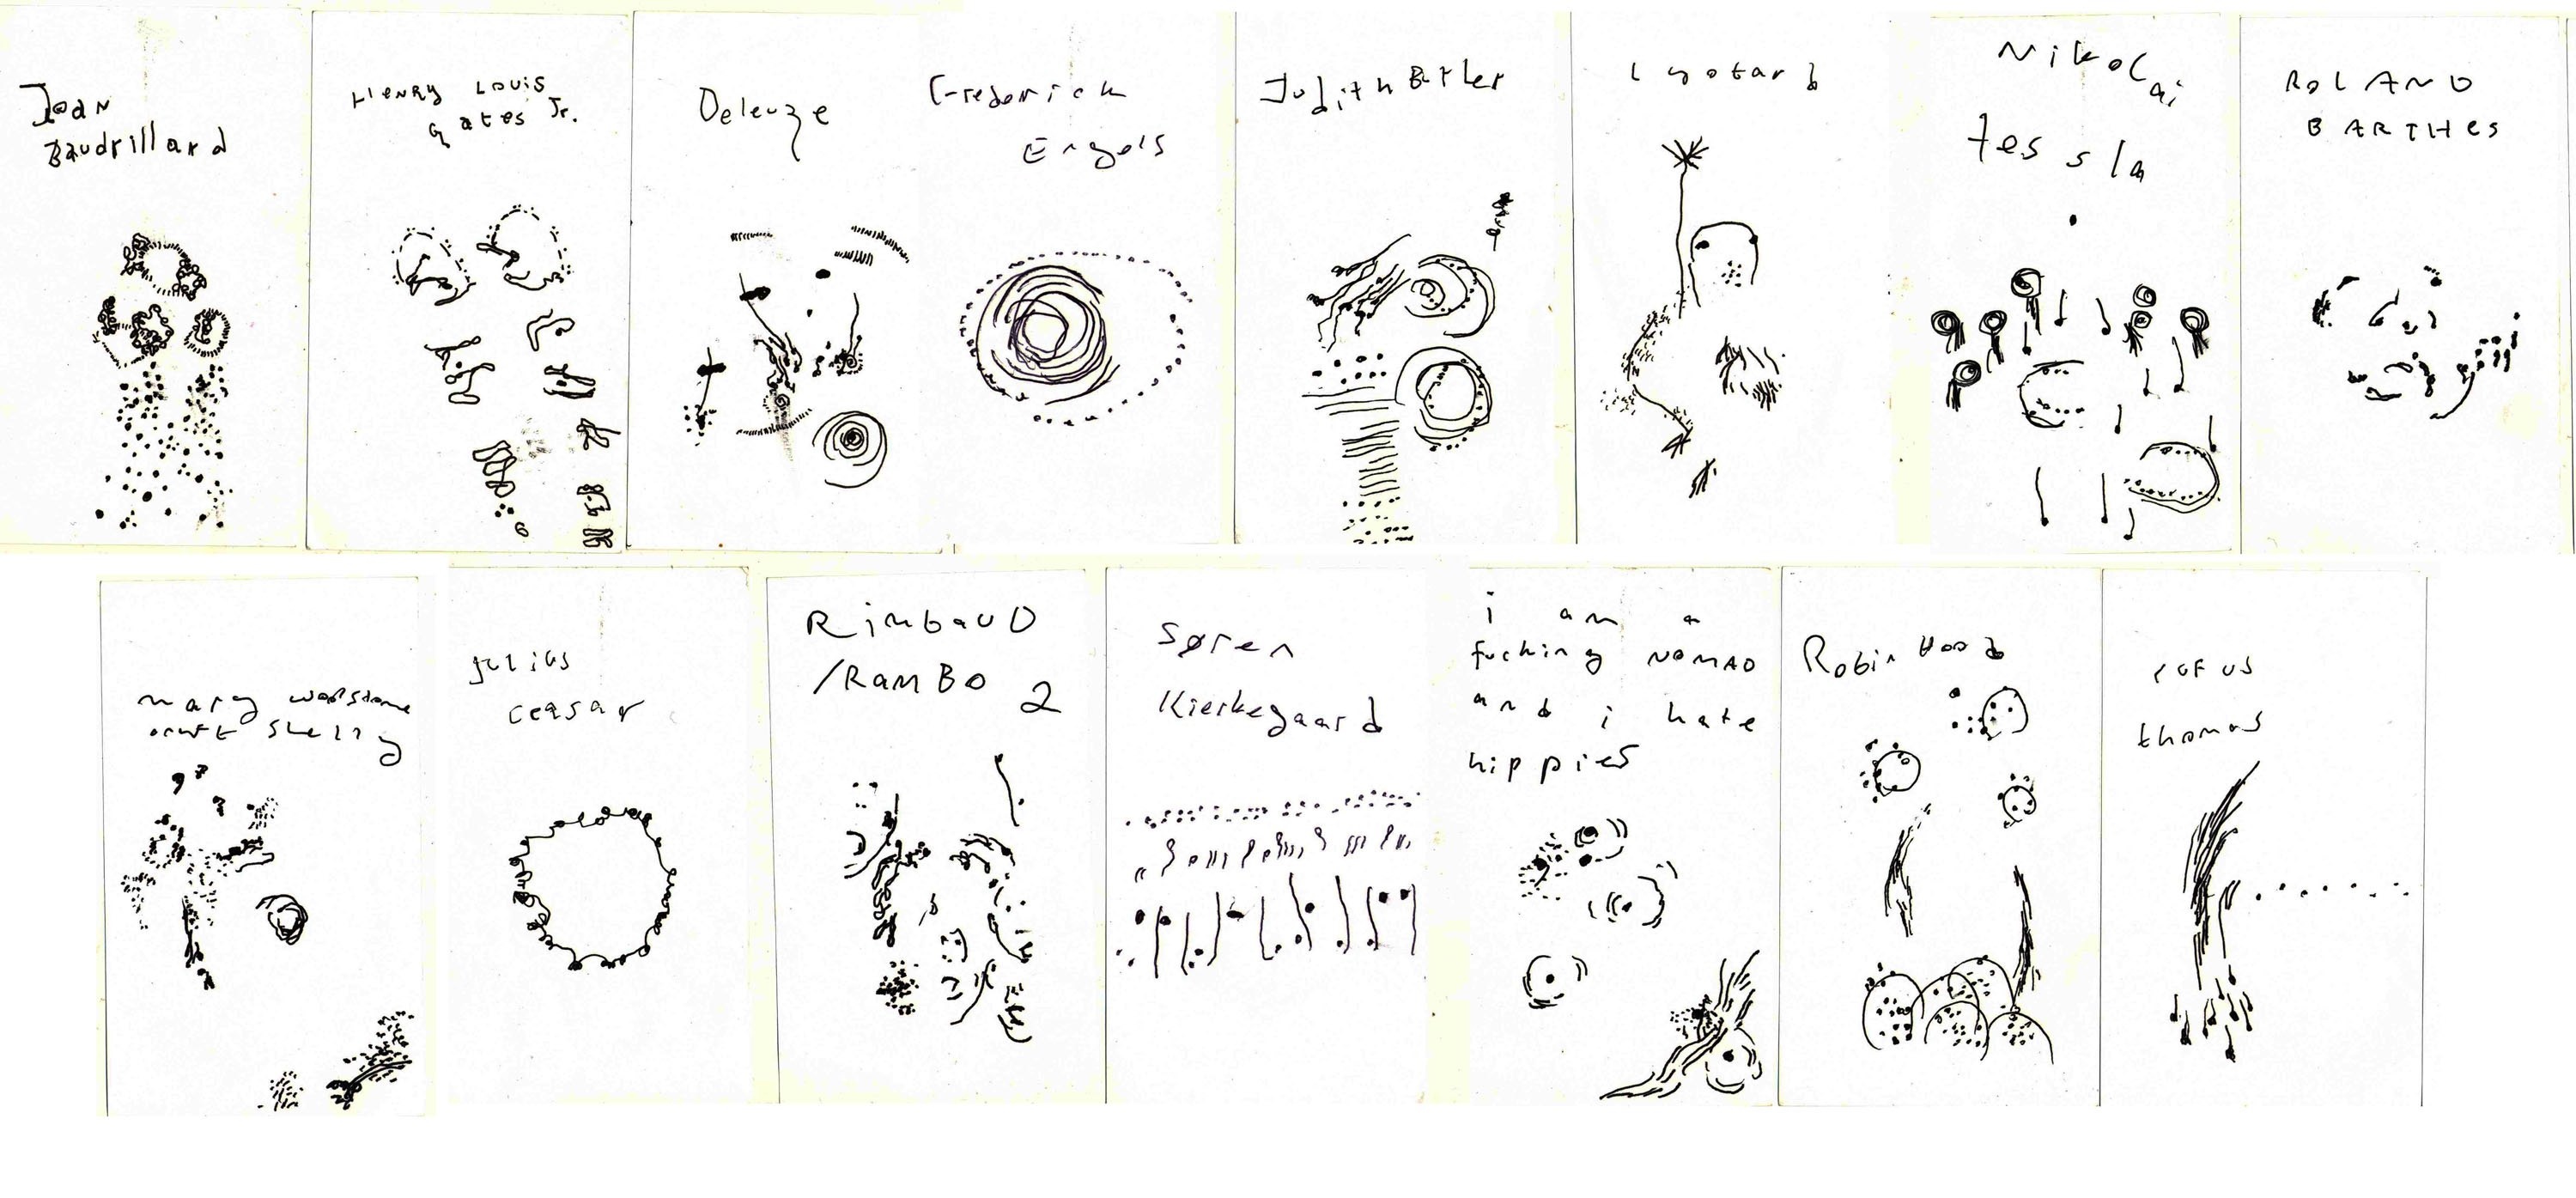 Jean
Baudrillard
Henry Louis
Gates Jr.
Deleuze
Frederick
Engels
Judith Butler
Lyotard
Nikolai
tessla
ROLAND
BARTHES
mary wolstone
craft shelly
julius
ceasar
RimbauD
/RAMBO 2
Søren
Kierkegaard
i am a
fucking NOMAD
and i hate
hippies
Robin Hood
rufus
thomas